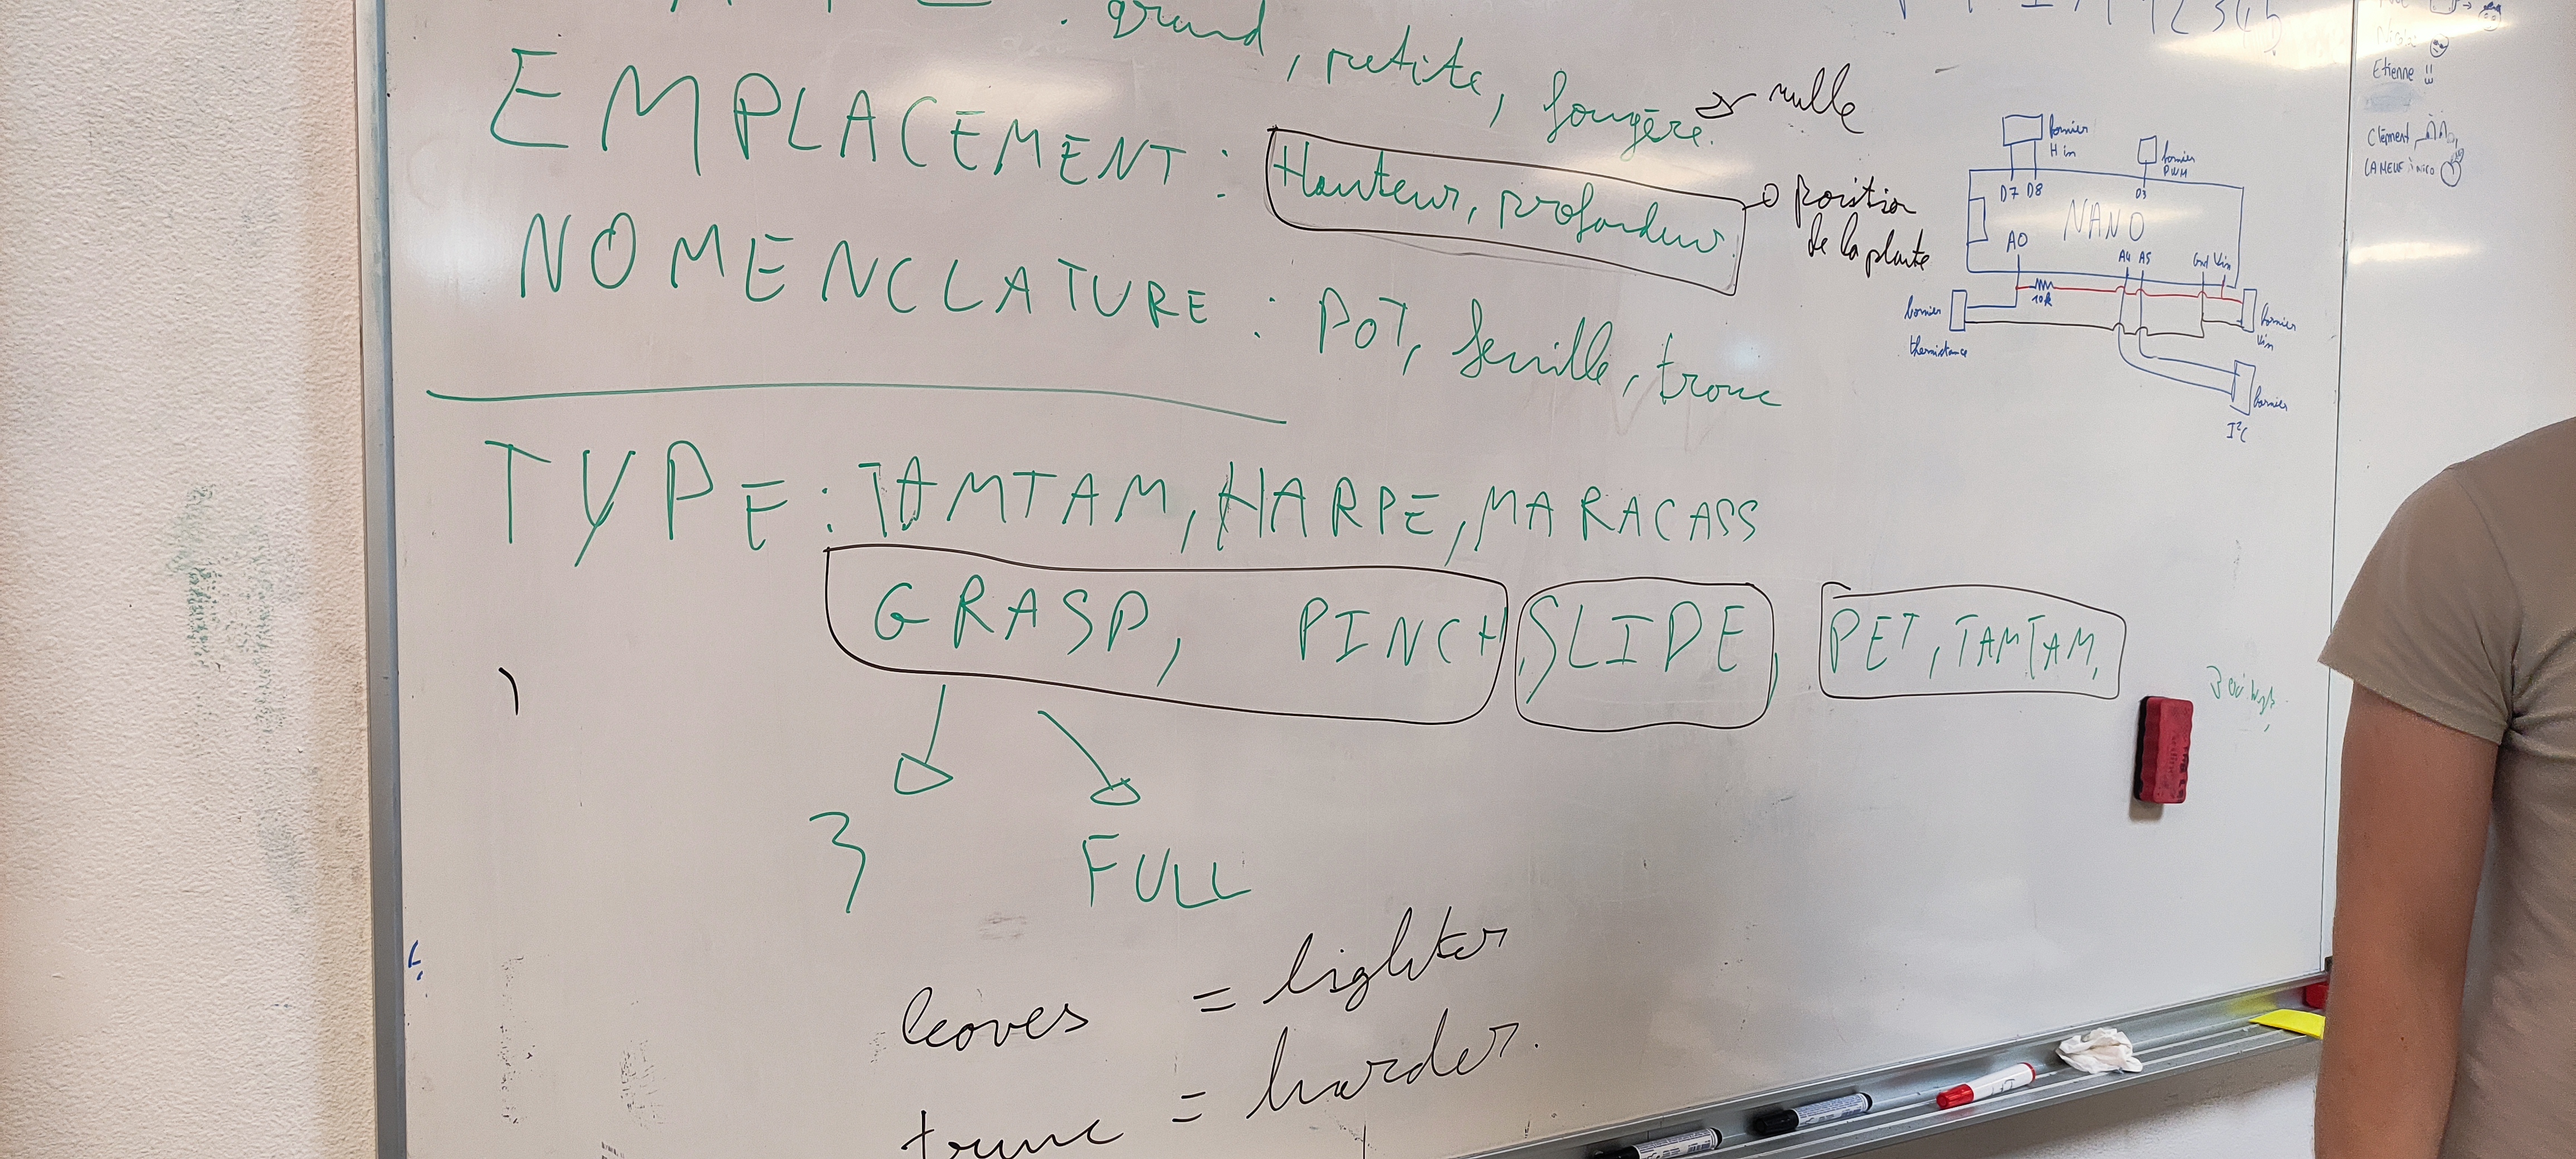 : grand, petite, fougère. nulle
EMPLACEMENT : Hauteur, profondeur
position
de la plante
NOMENCLATURE : POT, feuille, tronc
TYPE : TAMTAM, HARPE, MARACASS
GRASP, PINCH, SLIDE, PET, TAMTAM,
3 FULL
leaves = lighter
trunc = harder.
12345
bornier
H in
bornier
PWM
D7 D8 D3
NANO
A0
A4 A5 Gnd Vin
10k
bornier
thermistance
bornier
Vin
bornier
I²C
Etienne
Clément
LA MEUF à nico